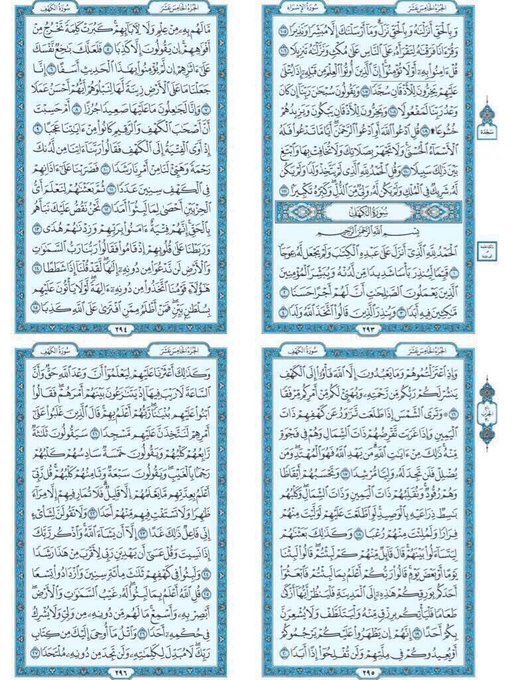 الجزء الخامس عشر
سورة الإسراء
وبالحق أنزلنه وبالحق نزل وما أرسلنك إلا مبشرا ونذيرا ١٠٥
وقرءانا فرقنه لتقرأه على الناس على مكث ونزلنه تنزيلا ١٠٦
قل ءامنوا به أو لا تؤمنوا إن الذين أوتوا العلم من قبله إذا يتلى
عليهم يخرون للأذقان سجدا ١٠٧ ويقولون سبحن ربنا إن كان
وعد ربنا لمفعولا ١٠٨ ويخرون للأذقان يبكون ويزيدهم
خشوعا ١٠٩ قل ادعوا الله أو ادعوا الرحمن أيا ما تدعوا فله
الأسماء الحسنى ولا تجهر بصلاتك ولا تخافت بها وابتغ
بين ذلك سبيلا ١١٠ وقل الحمد لله الذي لم يتخذ ولدا ولم يكن
له شريك في الملك ولم يكن له ولي من الذل وكبره تكبيرا ١١١
سورة الكهف
بسم الله الرحمن الرحيم
الحمد لله الذي أنزل على عبده الكتب ولم يجعل له عوجا
١ قيما لينذر بأسا شديدا من لدنه ويبشر المؤمنين
الذين يعملون الصلحت أن لهم أجرا حسنا ٢
مكثين فيه أبدا ٣ وينذر الذين قالوا اتخذ الله ولدا ٤
٢٩٣
سجدة
الجزء الخامس عشر
سورة الكهف
ما لهم به من علم ولا لءابائهم كبرت كلمة تخرج من
أفوههم إن يقولون إلا كذبا ٥ فلعلك بخع نفسك
على ءاثرهم إن لم يؤمنوا بهذا الحديث أسفا ٦ إنا
جعلنا ما على الأرض زينة لها لنبلوهم أيهم أحسن عملا
٧ وإنا لجعلون ما عليها صعيدا جرزا ٨ أم حسبت
أن أصحب الكهف والرقيم كانوا من ءايتنا عجبا ٩
إذ أوى الفتية إلى الكهف فقالوا ربنا ءاتنا من لدنك
رحمة وهيئ لنا من أمرنا رشدا ١٠ فضربنا على ءاذانهم
في الكهف سنين عددا ١١ ثم بعثنهم لنعلم أي
الحزبين أحصى لما لبثوا أمدا ١٢ نحن نقص عليك نبأهم
بالحق إنهم فتية ءامنوا بربهم وزدنهم هدى ١٣
وربطنا على قلوبهم إذ قاموا فقالوا ربنا رب السموت
والأرض لن ندعوا من دونه إلها لقد قلنا إذا شططا ١٤
هؤلاء قومنا اتخذوا من دونه ءالهة لولا يأتون عليهم
بسلطن بين فمن أظلم ممن افترى على الله كذبا ١٥
٢٩٤
الجزء الخامس عشر
سورة الكهف
وإذ اعتزلتموهم وما يعبدون إلا الله فأوا إلى الكهف
ينشر لكم ربكم من رحمته ويهيئ لكم من أمركم مرفقا
١٦ وترى الشمس إذا طلعت تزور عن كهفهم ذات
اليمين وإذا غربت تقرضهم ذات الشمال وهم في فجوة
منه ذلك من ءايت الله من يهد الله فهو المهتد ومن
يضلل فلن تجد له وليا مرشدا ١٧ وتحسبهم أيقاظا
وهم رقود ونقلبهم ذات اليمين وذات الشمال وكلبهم
بسط ذراعيه بالوصيد لو اطلعت عليهم لوليت منهم
فرارا ولملئت منهم رعبا ١٨ وكذلك بعثنهم
ليتساءلوا بينهم قال قائل منهم كم لبثتم قالوا لبثنا
يوما أو بعض يوم قالوا ربكم أعلم بما لبثتم فابعثوا
أحدكم بورقكم هذه إلى المدينة فلينظر أيها أزكى
طعاما فليأتكم برزق منه وليتلطف ولا يشعرن
بكم أحدا ١٩ إنهم إن يظهروا عليكم يرجموكم
أو يعيدوكم في ملتهم ولن تفلحوا إذا أبدا ٢٠
٢٩٥
الجزء الخامس عشر
سورة الكهف
وكذلك أعثرنا عليهم ليعلموا أن وعد الله حق وأن
الساعة لا ريب فيها إذ يتنزعون بينهم أمرهم فقالوا
ابنوا عليهم بنينا ربهم أعلم بهم قال الذين غلبوا على
أمرهم لنتخذن عليهم مسجدا ٢١ سيقولون ثلثة
رابعهم كلبهم ويقولون خمسة سادسهم كلبهم
رجما بالغيب ويقولون سبعة وثامنهم كلبهم قل ربي
أعلم بعدتهم ما يعلمهم إلا قليل فلا تمار فيهم إلا مراء
ظهرا ولا تستفت فيهم منهم أحدا ٢٢ ولا تقولن لشاىء
إني فاعل ذلك غدا ٢٣ إلا أن يشاء الله واذكر ربك
إذا نسيت وقل عسى أن يهدين ربي لأقرب من هذا رشدا
٢٤ ولبثوا في كهفهم ثلث مائة سنين وازدادوا تسعا
٢٥ قل الله أعلم بما لبثوا له غيب السموت والأرض
أبصر به وأسمع ما لهم من دونه من ولي ولا يشرك
في حكمه أحدا ٢٦ واتل ما أوحي إليك من كتاب
ربك لا مبدل لكلمته ولن تجد من دونه ملتحدا ٢٧
٢٩٦